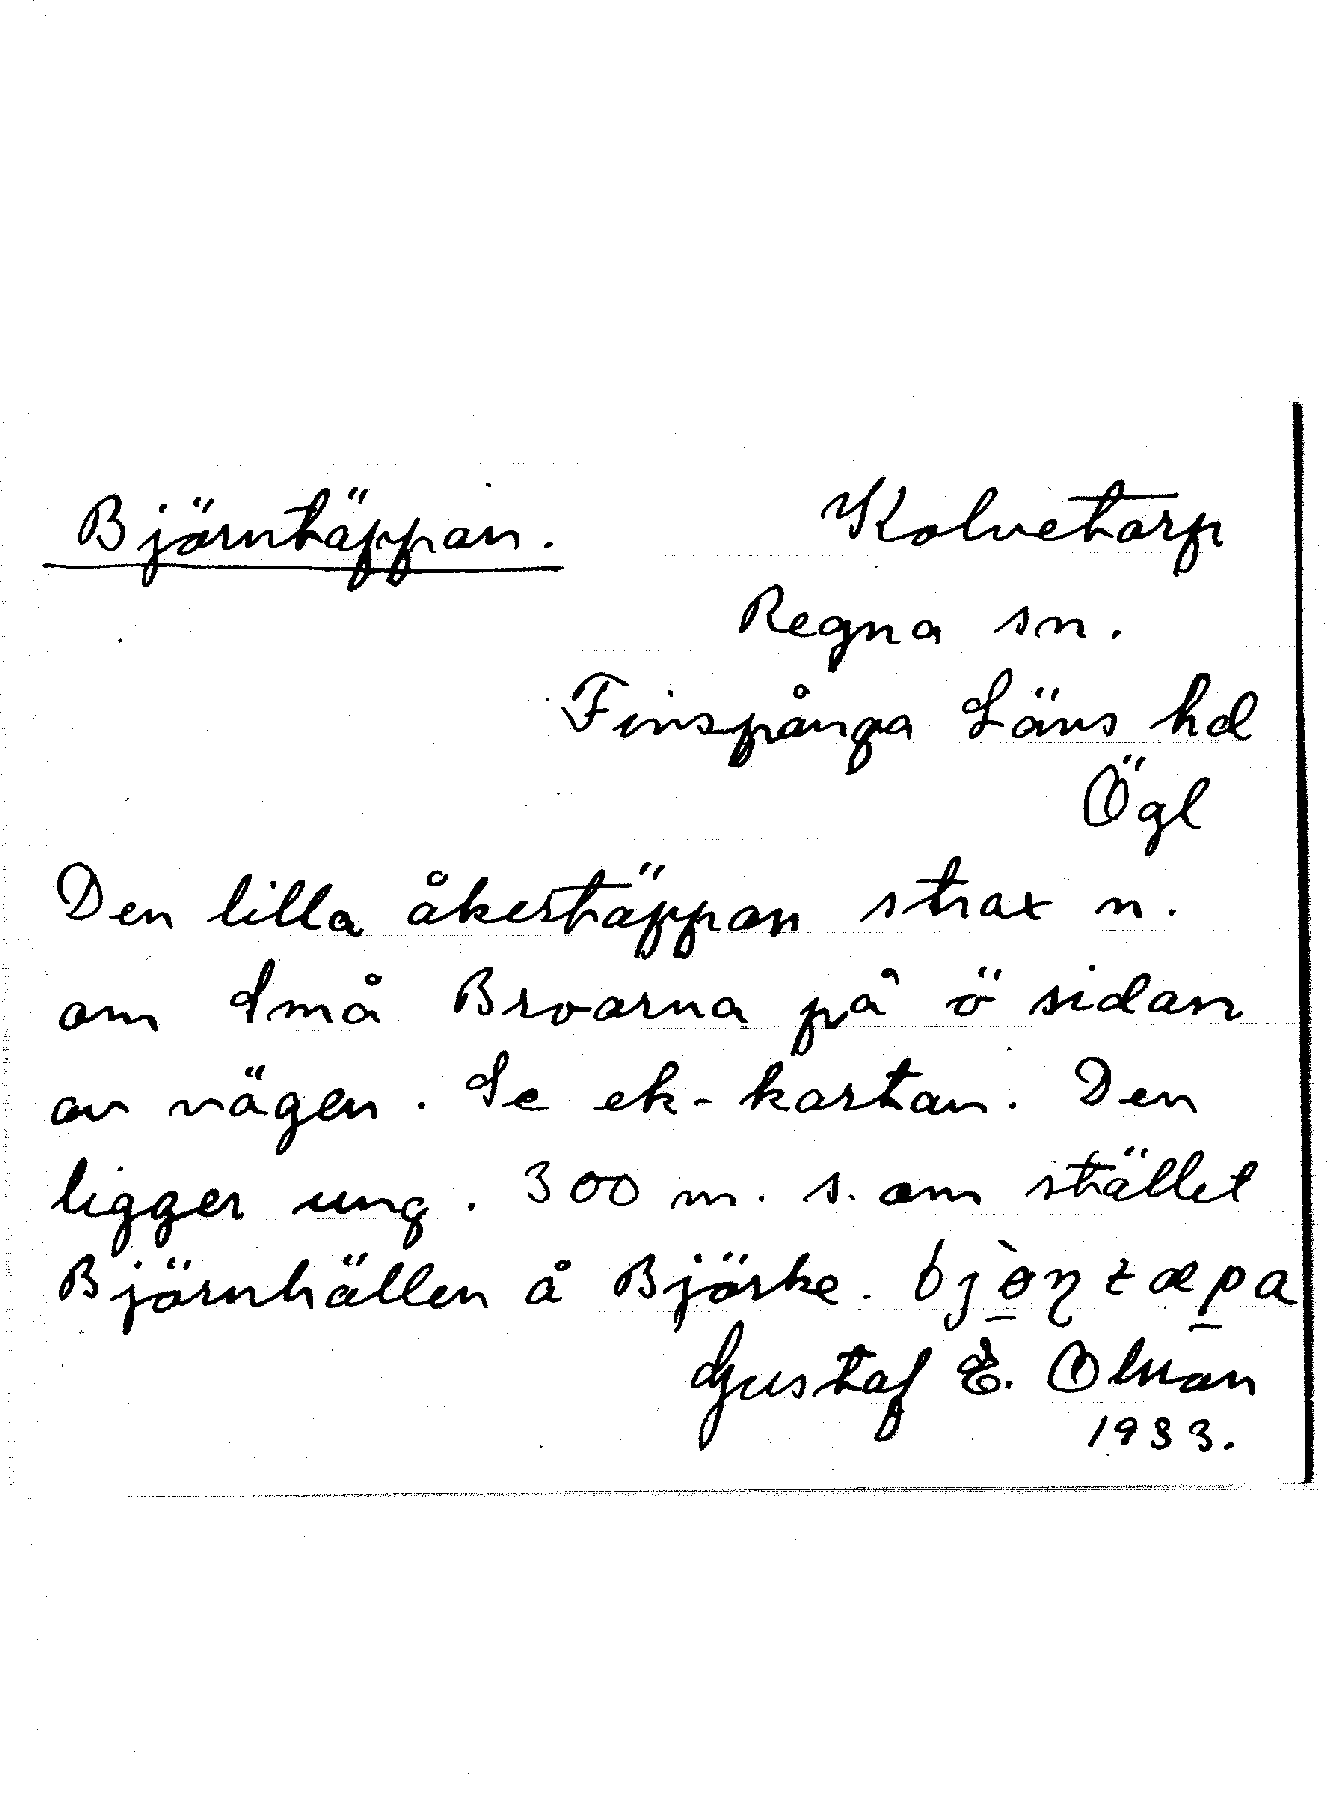 Björntäppan.
Kolvetorp
Regna sn.
Finspånga Läns hd
Ögl
Den lilla åkertäppan strax n.
om Små Broarna på ö sidan
av vägen. Se ek-kartan. Den
ligger ung. 300 m. s. om stället
Björnhällen å Björke.
Gustaf E. Olman
1933.